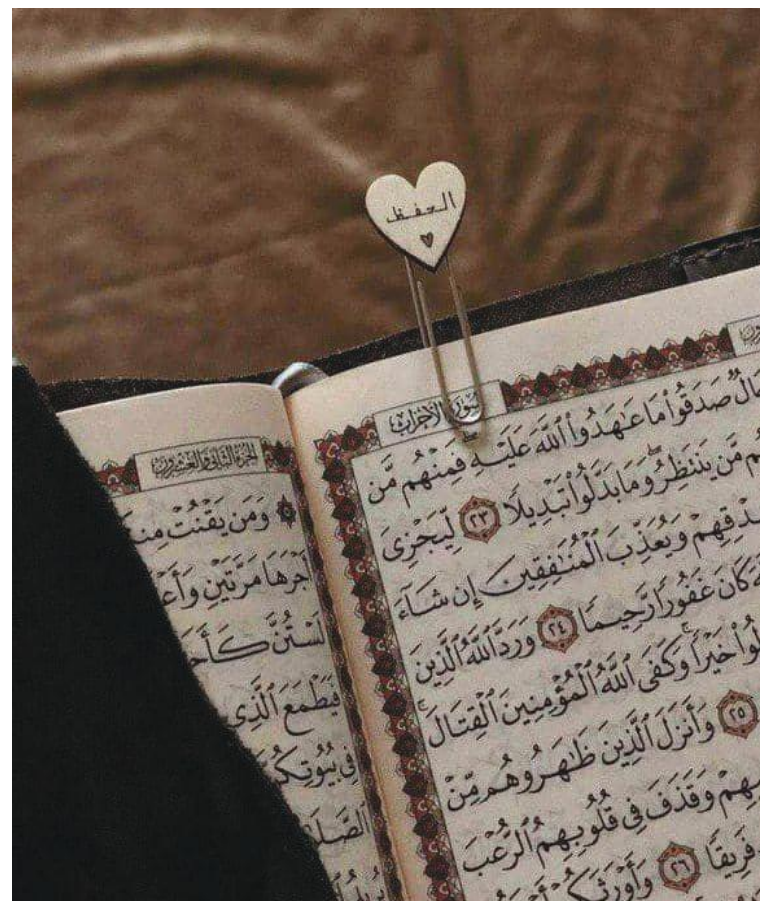 الحفظ
سورة الأحزاب
صَدَقُوا۟ مَا عَٰهَدُوا۟ ٱللَّهَ عَلَيْهِ فَمِنْهُم مَّن
مَّن يَنتَظِرُ وَمَا بَدَّلُوا۟ تَبْدِيلًا ٢٣ لِّيَجْزِىَ
وَيُعَذِّبَ ٱلْمُنَٰفِقِينَ إِن شَآءَ
كَانَ غَفُورًا رَّحِيمًا ٢٤ وَرَدَّ ٱللَّهُ ٱلَّذِينَ
خَيْرًا وَكَفَى ٱللَّهُ ٱلْمُؤْمِنِينَ ٱلْقِتَالَ
٢٥ وَأَنزَلَ ٱلَّذِينَ ظَٰهَرُوهُم مِّنْ
وَقَذَفَ فِى قُلُوبِهِمُ ٱلرُّعْبَ
فَرِيقًا ٢٦
الجزء الثاني والعشرون
وَمَن يَقْنُتْ
أَجْرَهَا مَرَّتَيْنِ
لَسْتُنَّ
فَيَطْمَعَ ٱلَّذِى
فِى